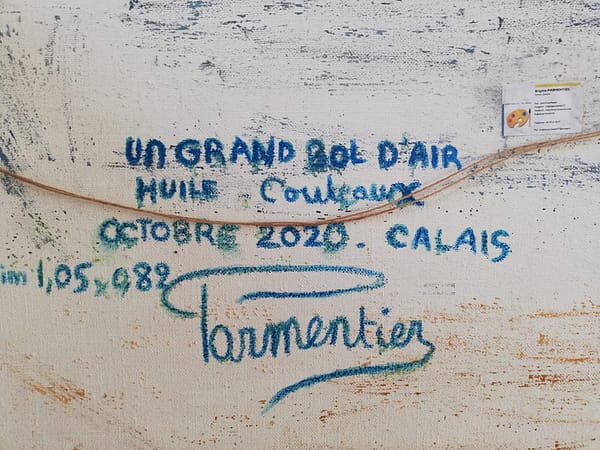 UN GRAND BOL D'AIR
HUILE Couteaux
OCTOBRE 2020. CALAIS
im 1,05x0,82
Parmentier
Brigitte PARMENTIER